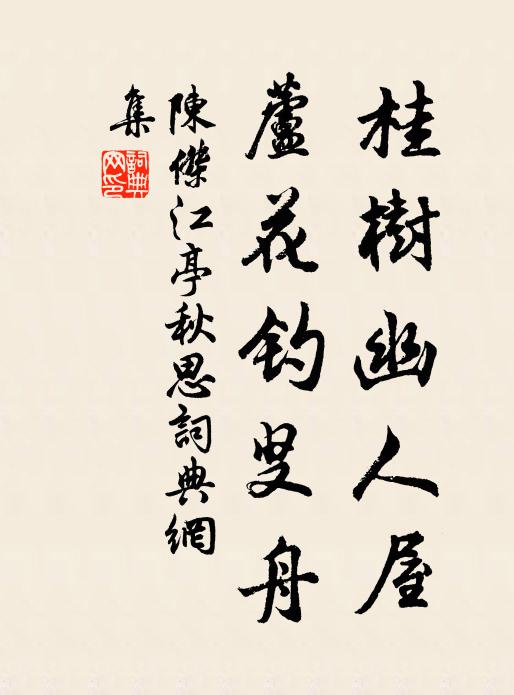 桂樹幽人屋
蘆花釣叟舟
陳傑江亭秋思詞典網
集
詞典
网印